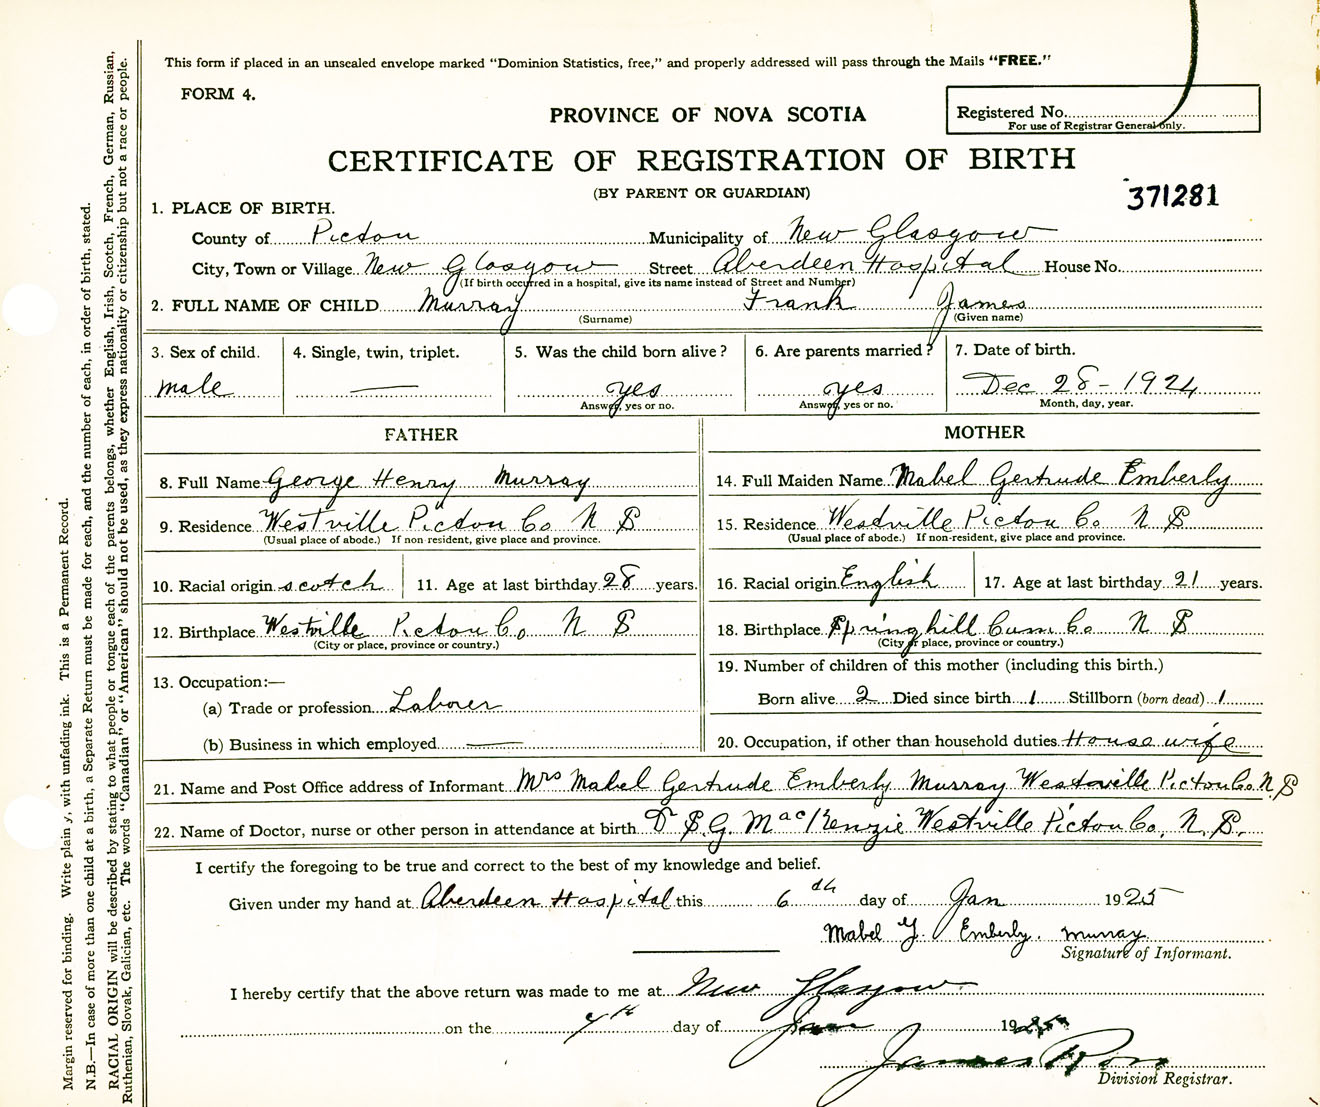 This form if placed in an unsealed envelope marked "Dominion Statistics, free," and properly addressed will pass through the Mails "FREE."
FORM 4.
PROVINCE OF NOVA SCOTIA
Registered No.
For use of Registrar General only.
CERTIFICATE OF REGISTRATION OF BIRTH
(BY PARENT OR GUARDIAN)
371281
1. PLACE OF BIRTH.
County of Pictou Municipality of New Glasgow
City, Town or Village New Glasgow Street Aberdeen Hospital House No.
(If birth occurred in a hospital, give its name instead of Street and Number)
2. FULL NAME OF CHILD Murray Frank James
(Surname) (Given name)
3. Sex of child. 4. Single, twin, triplet. 5. Was the child born alive? 6. Are parents married? 7. Date of birth.
male — yes yes Dec 28 - 1924
Answer, yes or no. Answer, yes or no. Month, day, year.
FATHER MOTHER
8. Full Name George Henry Murray 14. Full Maiden Name Mabel Gertrude Emberly
9. Residence Westville Pictou Co N S 15. Residence Westville Pictou Co N S
(Usual place of abode.) If non-resident, give place and province. (Usual place of abode.) If non-resident, give place and province.
10. Racial origin scotch 11. Age at last birthday 28 years. 16. Racial origin English 17. Age at last birthday 21 years.
12. Birthplace Westville Pictou Co N S 18. Birthplace Springhill Cum Co N S
(City or place, province or country.) (City or place, province or country.)
13. Occupation:— 19. Number of children of this mother (including this birth.)
(a) Trade or profession Laborer Born alive 2 Died since birth 1 Stillborn (born dead) 1
(b) Business in which employed — 20. Occupation, if other than household duties House wife
21. Name and Post Office address of Informant Mrs Mabel Gertrude Emberly Murray Westville Pictou Co. N. S
22. Name of Doctor, nurse or other person in attendance at birth Dr S. G. MacKenzie Westville Pictou Co, N. S.
I certify the foregoing to be true and correct to the best of my knowledge and belief.
Given under my hand at Aberdeen Hospital this 6th day of Jan 1925
Mabel G. Emberly. Murray
Signature of Informant.
I hereby certify that the above return was made to me at New Glasgow
on the day of Jan 1925
James Ross
Division Registrar.
Margin reserved for binding. Write plainly, with unfading ink. This is a Permanent Record.
N.B.—In case of more than one child at a birth, a Separate Return must be made for each, and the number of each, in order of birth, stated.
RACIAL ORIGIN will be described by stating to what people or tongue each of the parents belongs, whether English, Irish, Scotch, French, German, Russian,
Ruthenian, Slovak, Galician, etc. The words "Canadian" or "American" should not be used, as they express nationality or citizenship but not a race or people.